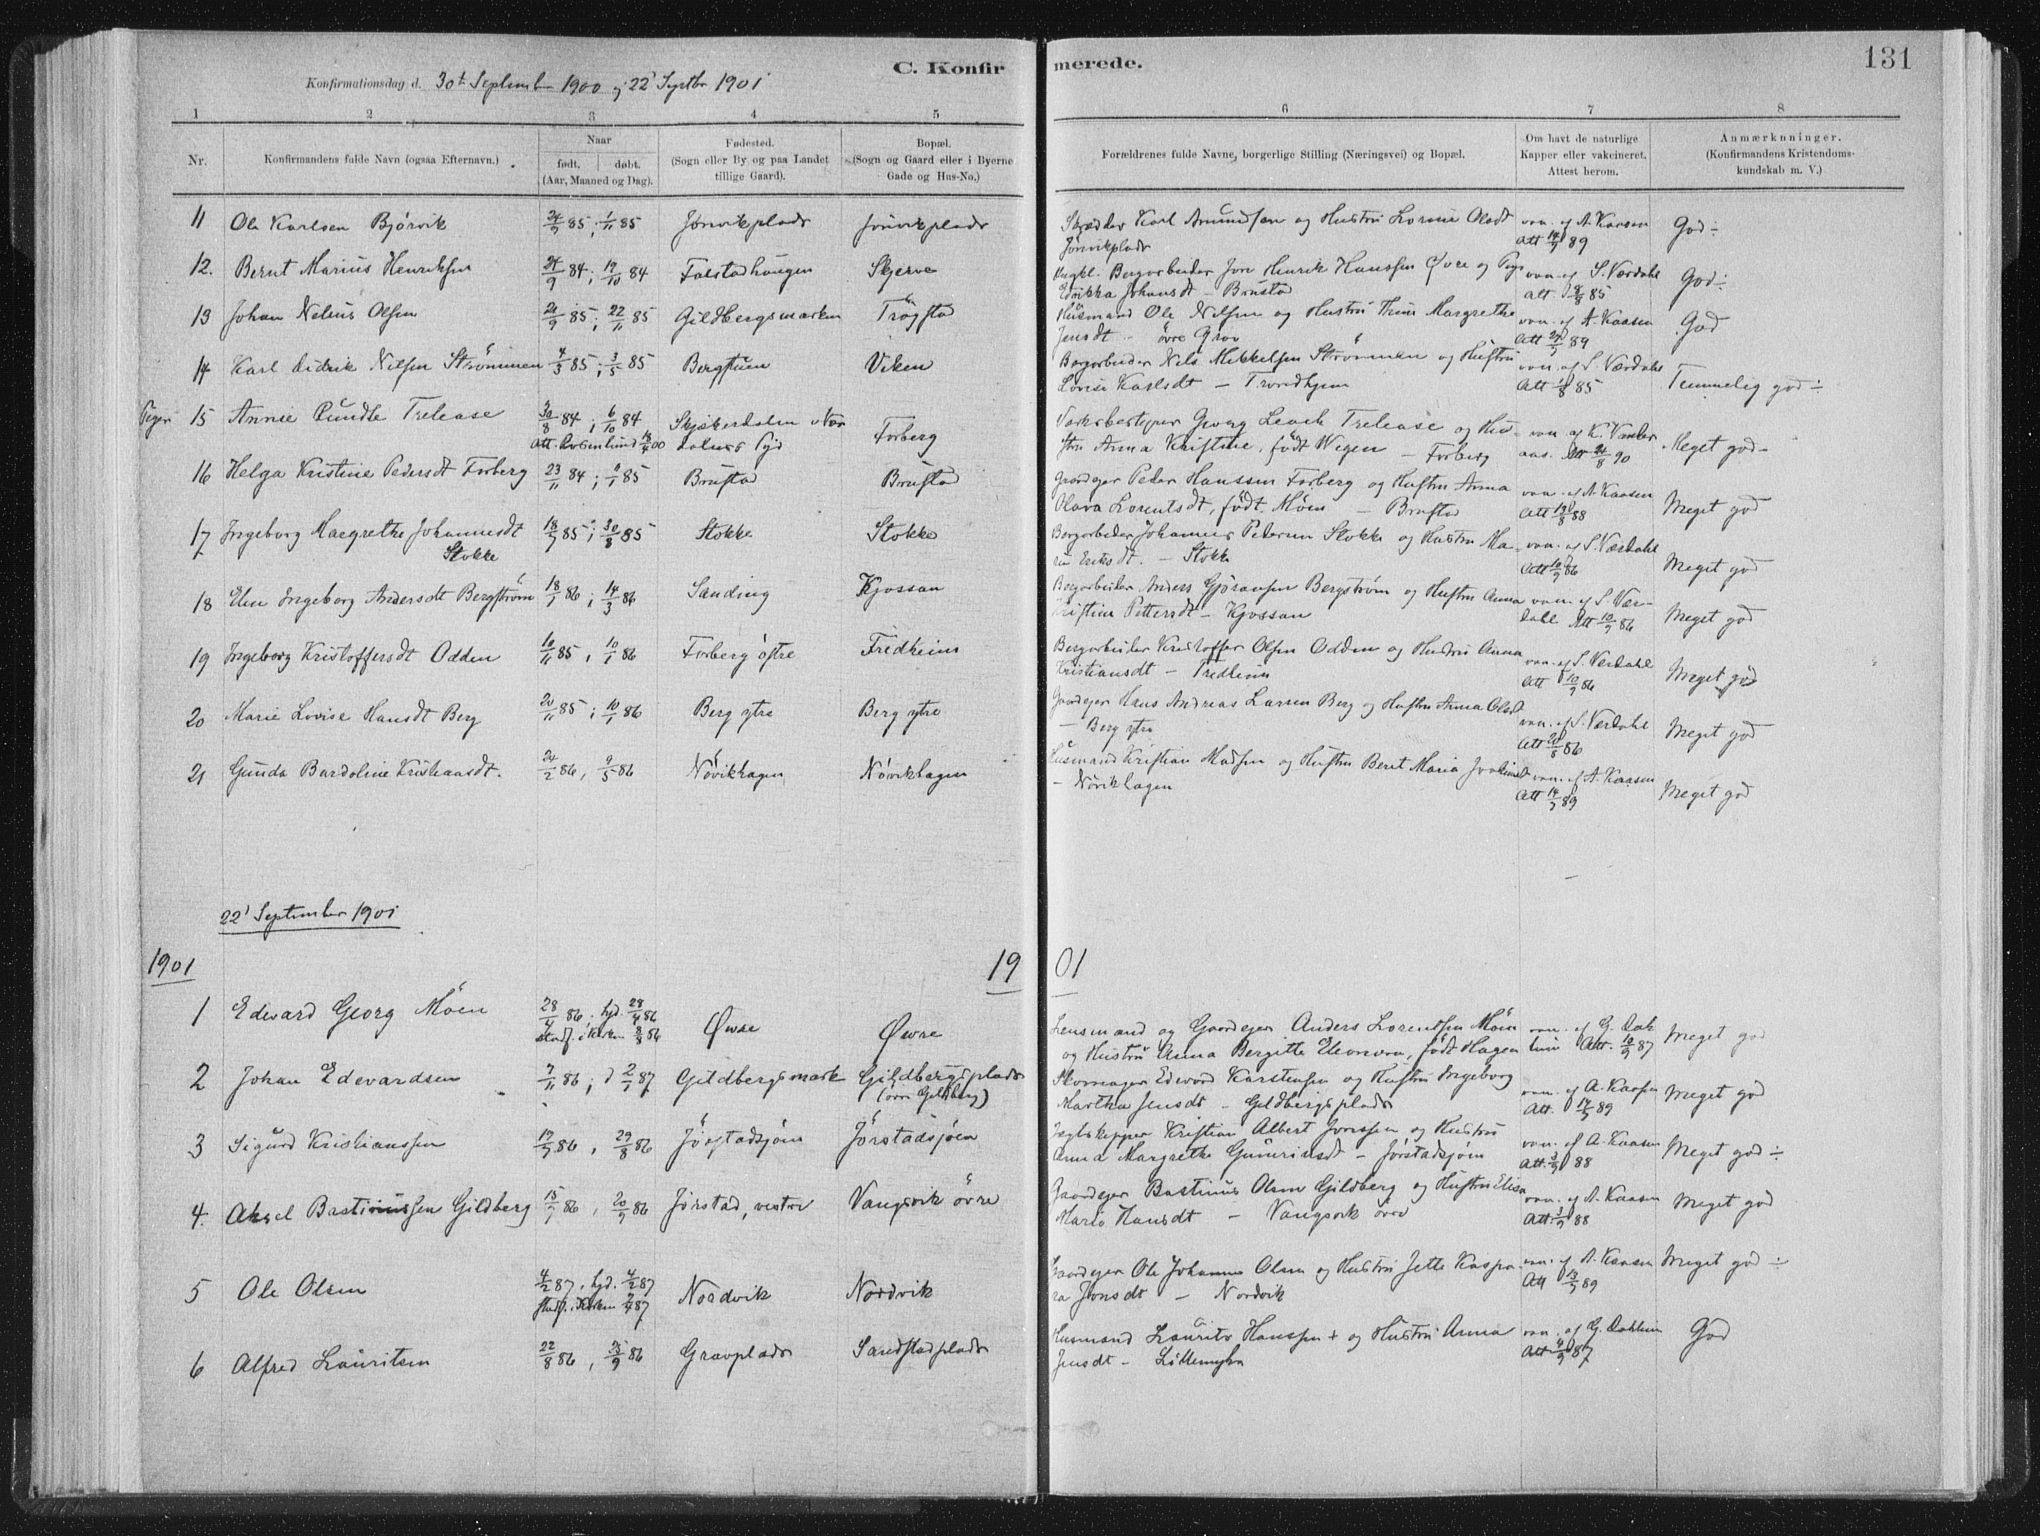 C. Konfir merede. 131
Konfirmationsdag d. 30t September 1900 og 22' Septbr 1901
1 2 3 4 5 6 7 8
Nr. Konfirmandens fulde Navn (ogsaa Efternavn.) Naar født, døbt. (Aar, Maaned og Dag). Fødested. (Sogn eller By og paa Landet tillige Gaard). Bopæl. (Sogn og Gaard eller i Byerne Gade og Hus-No.) Forældrenes fulde Navne, borgerlige Stilling (Næringsvei) og Bopæl. Om havt de naturlige Kapper eller vakcineret. Attest herom. Anmærkninger. (Konfirmandens Kristendomskundskab m. V.)
11 Ole Karlsen Bjørvik 24/9 85; 1/11 85 Jönvikplads Jönvikplads Skrædder Karl Amundsen og Hustru Lorine Olsdt vac. af A. Kaasen God ÷
Jönvikplads Att 14/9 89
12. Bernt Marius Henriksen 24/9 84; 19/10 84 Falstadhaugen Skjerve Ungkl. Bergarbeider Jon Henrik Hanssen Øvre og Pige vac. af S. Værdahl God ÷
Edrikka Johansdt - Brustad Att 8/8 85
13 Johan Nelius Olsen 21/9 85; 22/11 85 Gildbergsmarken Trøgstad Husmand Ole Nilsen og Hustru Margrethe vac. af A. Kaasen God
Jensdt - övre Grav Att 24/9 89
14 Karl Didrik Nilsen Strömmen 4/3 85; 3/5 85 Bergstuen Viken Bergarbeider Nils Mikkelsen Strömmen og Hustru vac. af S. Værdahl Temmelig god ÷
Lovise Karlsdt - Trondhjem Att 1/8 85
Piger 15 Annie Rundle Trelease 30/8 84; 6/10 84 Skjækerdalen Værdalens Pgd Forberg Værksbestyrer Georg Leach Trelease og Hustru Anna Kristine, født Wegen - Forberg Meget god -
Att. Rosenlund Att 24/8 90
16 Helga Kristine Pedersdt Forberg 23/11 84; 1/1 85 Brustad Brustad Gaardejer Peder Hanssen Forberg og Hustru Anna vac. af A. Kaasen Meget god
Olava Lorentsdt, født Möen - Brustad Att 19/8 88
17 Ingeborg Margrethe Johannesdt Stokke 18/7 85; 30/8 85 Stokke Stokke Bergarbeider Johannes Pedersen Stokke og Hustru Ma- vac. af S. Værdahl Meget god
rie Eriksdt. - Stokke Att 10/9 86
18 Elen Ingeborg Andersdt Bergström 18/1 86; 14/3 86 Sanding Kjossan Bergarbeider Anders Gjöransen Bergström og Hustru Anna vac. af S. Vær- Meget god
Kristine Pettersdt - Kjossan dahl Att 10/9 86
19 Ingeborg Kristoffersdt Odden 10/11 85, 10/1 86 Forberg östre Fredheim Bergarbeider Kristoffer Olsen Odden og Hustru Anna vac. af S. Værdahl Meget god
Kristiansdt - Fredheim Att 10/9 86
20 Marie Lovise Hansdt Berg 20/11 85; 10/1 86 Berg ytre Berg ytre Gaardejer Hans Andreas Larsen Berg og Hustru Anna Olsdt vac. af S. Værdahl Meget god
- Berg ytre Att 20/8 86
21 Gunda Bardoline Kristiansdt. 24/2 86, 9/5 86 Növikhagen Növikhagen Husmand Kristian Madsen og Hustru Beret Maria vac. af A. Kaasen Meget god
- Növikhagen Att 14/9 89
22' September 1901
1901 19 01
1 Edevard Georg Möen 28/4 86. hjd. 28/4 86 Øvre Øvre Lensmand og Gaardejer Anders Lorentsen Möen vac. af G. Dah- Meget god
stadf. i Kirken 8/8 86 og Hustru Anna Bergitte Eleonora, født Hagen Att. 10/9 87
2 Johan Edevardsen 7/11 86; d 2/1 87 Gildbergsmark Gildbergsplads Skomager Edevard Karstensen og Hustru Ingeborg vac. af A. Kaasen Meget god
(övre Gildberg) Martha Jensdt - Gildbergsplads Att. 14/9 89
3 Sigurd Kristianssen 19/7 86, 29/8 86 Jörstadsjöen Jörstadsjöen Jægtskipper Kristian Albert Jonssen og Hustru vac. af A. Kaasen Meget god ÷
Anna Margrethe - Jörstadsjöen Att. 3/9 88
4. Aksel Bastinussen Gildberg 15/7 86, 20/9 86 Jörstad, vestre Vangsvik övre Gaardejer Bastinus Olsen Gildberg og Hustru Elisa vac. af A. Kaasen Meget god
Marie Hansdt - Vangsvik övre Att. 3/9 88
5 Ole Olsen 4/2 87, hjd. 4/2 87 Nordvik Nordvik Gaardejer Ole Johannes Olsen og Hustru Jette Kaspa- vac. af A. Kaasen Meget god ÷
stadf. i Kirken ra Jonsdt - Nordvik Att 13/9 89
6 Alfred Lauritsen 22/8 86, 26/9 86 Gravplads Sandstadplads Husmand Laurits Hanssen + og Hustru Anna vac. af G. Dahlum God
Jensdt - Att 4/9 87